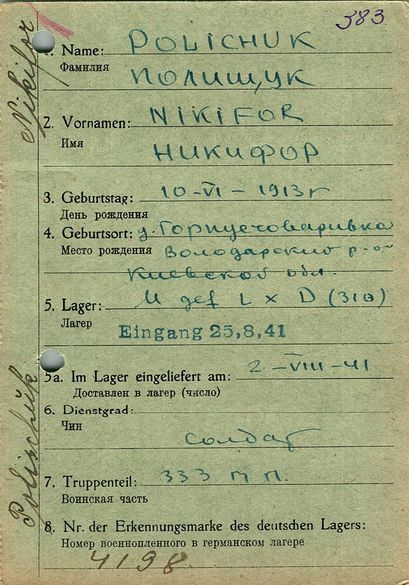 383
1. Name: POLICHUK
Фамилия ПОЛИЩУК
2. Vornamen: NIKIFOR
Имя НИКИФОР
3. Geburtstag: 10-VI-1913г
День рождения
4. Geburtsort: д.
Место рождения Володарский р-о
Киевской обл.
5. Lager: M
Лагер
Eingang 25,8,41
5a. Im Lager eingeliefert am: 2-VIII-41
Доставлен в лагер (число)
6. Dienstgrad:
Чин
солдат
7. Truppenteil: 333
Воинская часть
8. Nr. der Erkennungsmarke des deutschen Lagers:
Номер военнопленного в германском лагере
4198.
Nikifor
Polischük